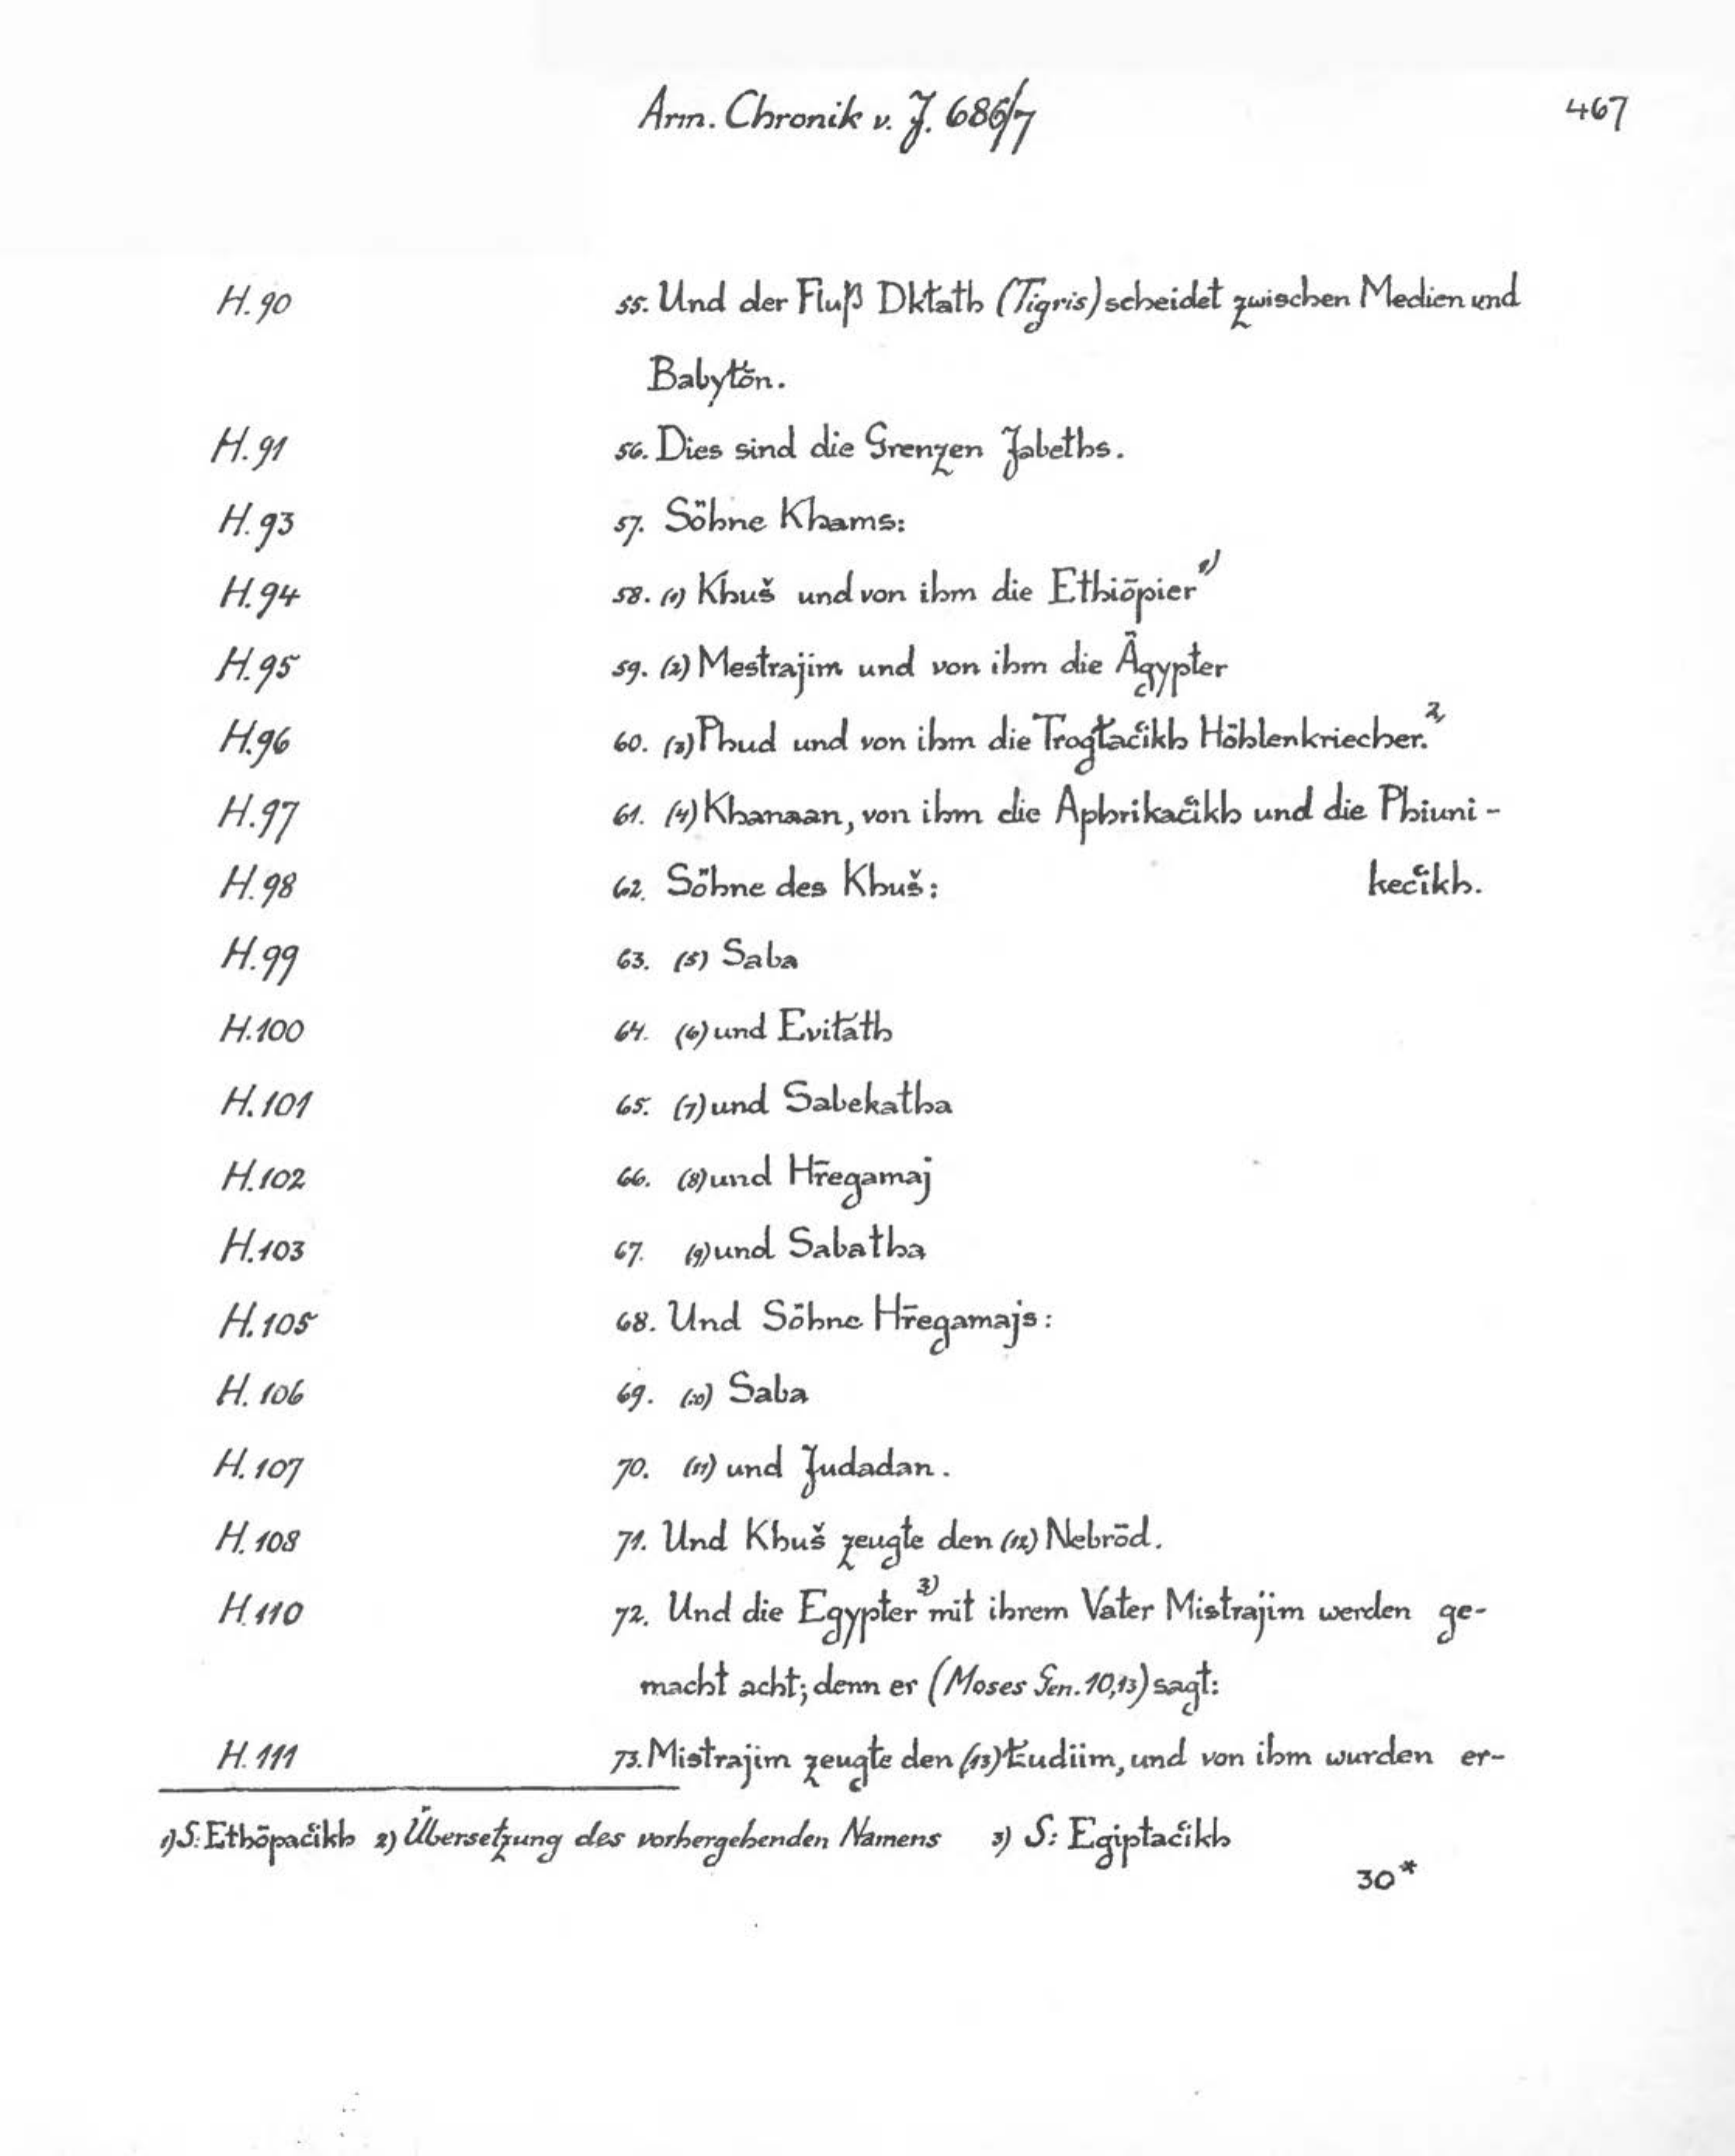 Arm. Chronik v. J. 686/7 467
H. 90 55. Und der Fluß Dkłath (Tigris) scheidet zwischen Medien und
Babyłōn.
H. 91 56. Dies sind die Grenzen Jabeths.
H. 93 57. Söhne Khams:
H. 94 58. (1) Khuš und von ihm die Ethiōpier 1)
H. 95 59. (2) Mestrajim und von ihm die Ägypter
H. 96 60. (3) Phud und von ihm die Trogłac̒ikh Höhlenkriecher. 2)
H. 97 61. (4) Khanaan, von ihm die Aphrikac̒ikh und die Phiuni-
H. 98 62. Söhne des Khuš: kec̒ikh.
H. 99 63. (5) Saba
H. 100 64. (6) und Eviłath
H. 101 65. (7) und Sabekatha
H. 102 66. (8) und Hr̄egamaj
H. 103 67. (9) und Sabatha
H. 105 68. Und Söhne Hr̄egamajs:
H. 106 69. (10) Saba
H. 107 70. (11) und Judadan.
H. 108 71. Und Khuš zeugte den (12) Nebrōd.
H. 110 72. Und die Egypter 3) mit ihrem Vater Mistrajim werden ge-
macht acht; denn er (Moses Gen. 10,13) sagt:
H. 111 73. Mistrajim zeugte den (13) Łudiim, und von ihm wurden er-
1) S: Ethōpac̒ikh 2) Übersetzung des vorhergehenden Namens 3) S: Egiptac̒ikh
30*